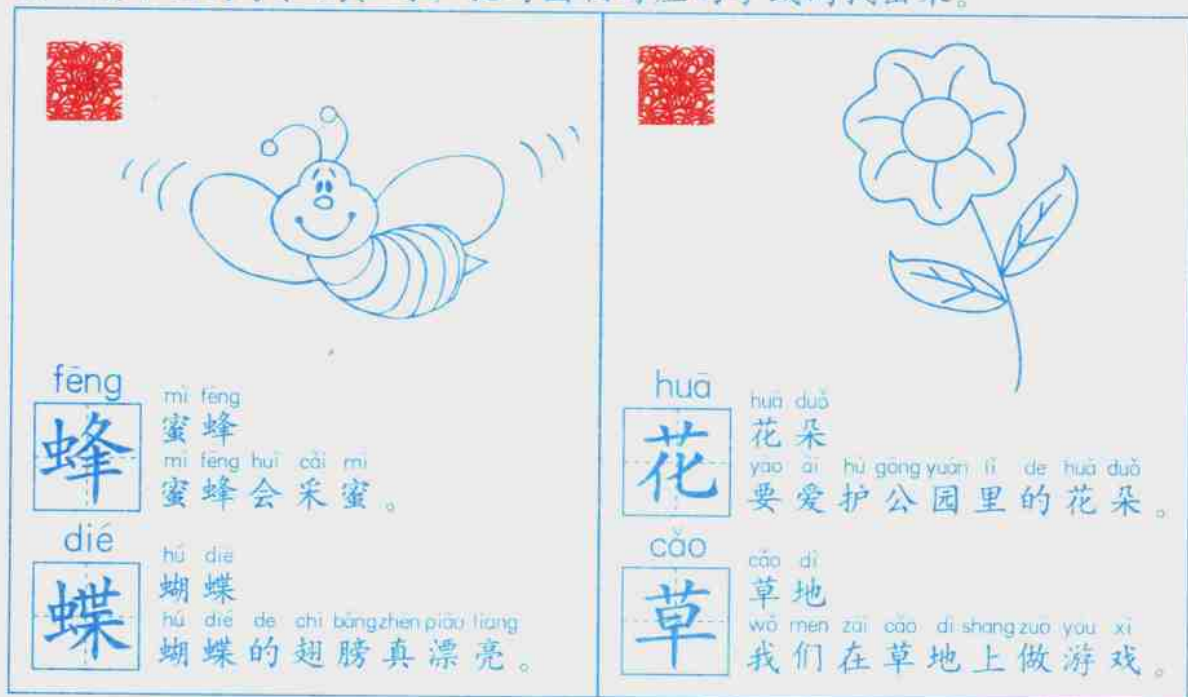 fēng
蜂
mì fēng
蜜蜂
mì fēng huì cǎi mì
蜜蜂会采蜜。
dié
蝶
hú dié
蝴蝶
hú dié de chì bǎng zhēn piào liang
蝴蝶的翅膀真漂亮。
huā
花
huā duǒ
花朵
yào ài hù gōng yuán lǐ de huā duǒ
要爱护公园里的花朵。
cǎo
草
cǎo dì
草地
wǒ men zài cǎo dì shang zuò yóu xì
我们在草地上做游戏。